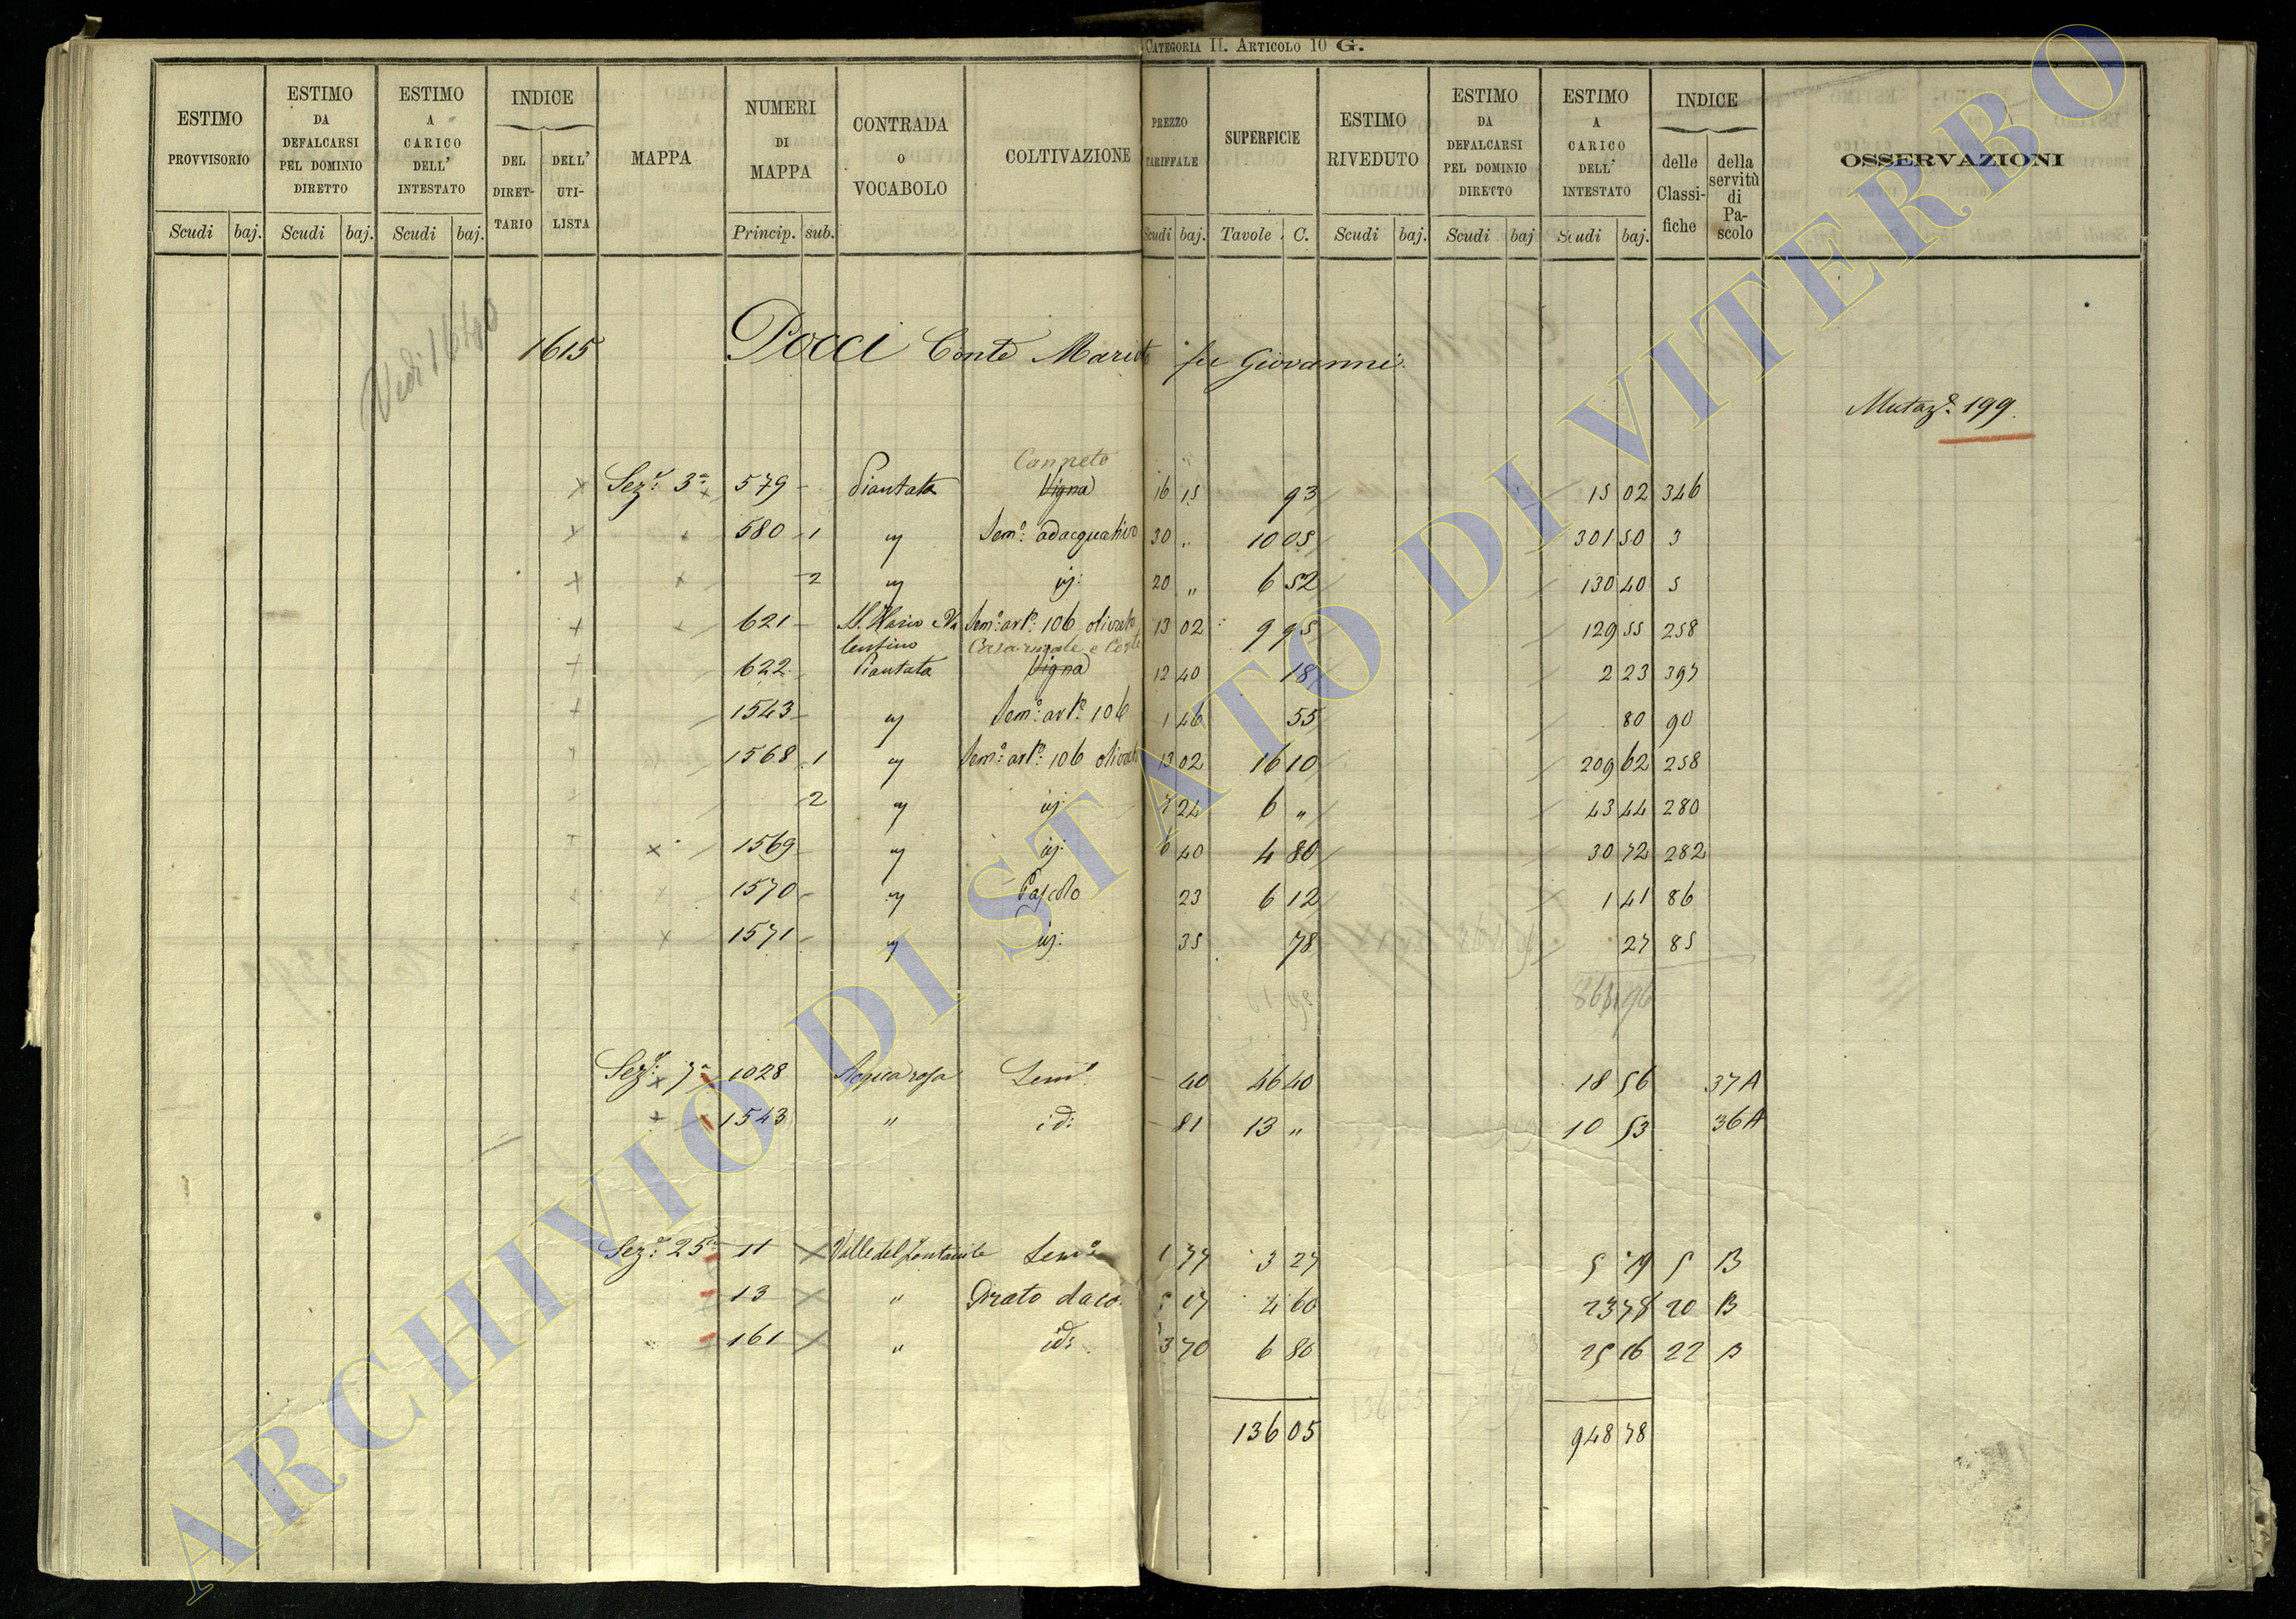 CATEGORIA II. ARTICOLO 10 G.
ESTIMO PROVVISORIO Scudi baj. ESTIMO DA DEFALCARSI PEL DOMINIO DIRETTO Scudi baj. ESTIMO A CARICO DELL' INTESTATO Scudi baj. INDICE DEL DIRET-TARIO DELL' UTI-LISTA MAPPA NUMERI DI MAPPA Princip. sub. CONTRADA O VOCABOLO COLTIVAZIONE PREZZO TARIFFALE Scudi baj. SUPERFICIE Tavole C. ESTIMO RIVEDUTO Scudi baj. ESTIMO DA DEFALCARSI PEL DOMINIO DIRETTO Scudi baj ESTIMO A CARICO DELL' INTESTATO Scudi baj. INDICE delle Classi-fiche della servitù di Pa-scolo OSSERVAZIONI
Vedi
1615 Pocci Conte fu Giovanni
Mutaz.e 199.
Canneto
Sez.e 3a 579 Piantata Vigna 16 15 93 15 02 346
580 1 " Sem.o adacquativo 30 " 10 05 301 50 3
2 " id: 20 " 6 52 130 40 5
621 Sem.o art.o 106 olivato 13 02 9 95 129 55 258
lentino Casa rurale e Corte
622 Piantata Vigna 12 40 18 2 23 397
1543 " Sem.o art.o 106 1 46 55 80 90
1568 1 " Sem.o art.o 106 olivato 13 02 16 10 209 62 258
2 " id: 7 24 6 " 43 44 280
1569 " id: 6 40 4 80 30 72 282
1570 " Pascolo 23 6 12 1 41 86
1571 " id: 35 78 27 85
Sez.e 7a 1028 Sem.o 40 46 40 18 56 37A
1543 " id: 81 13 " 10 53 36A
Sez.e 25 11 Valle del Sem.o 1 77 3 27 5 79 5 B
13 " Prato 5 17 4 60 23 78 20 B
161 " id: 3 70 6 80 25 16 22 B
136 05 948 78
ARCHIVIO DI STATO DI VITERBO